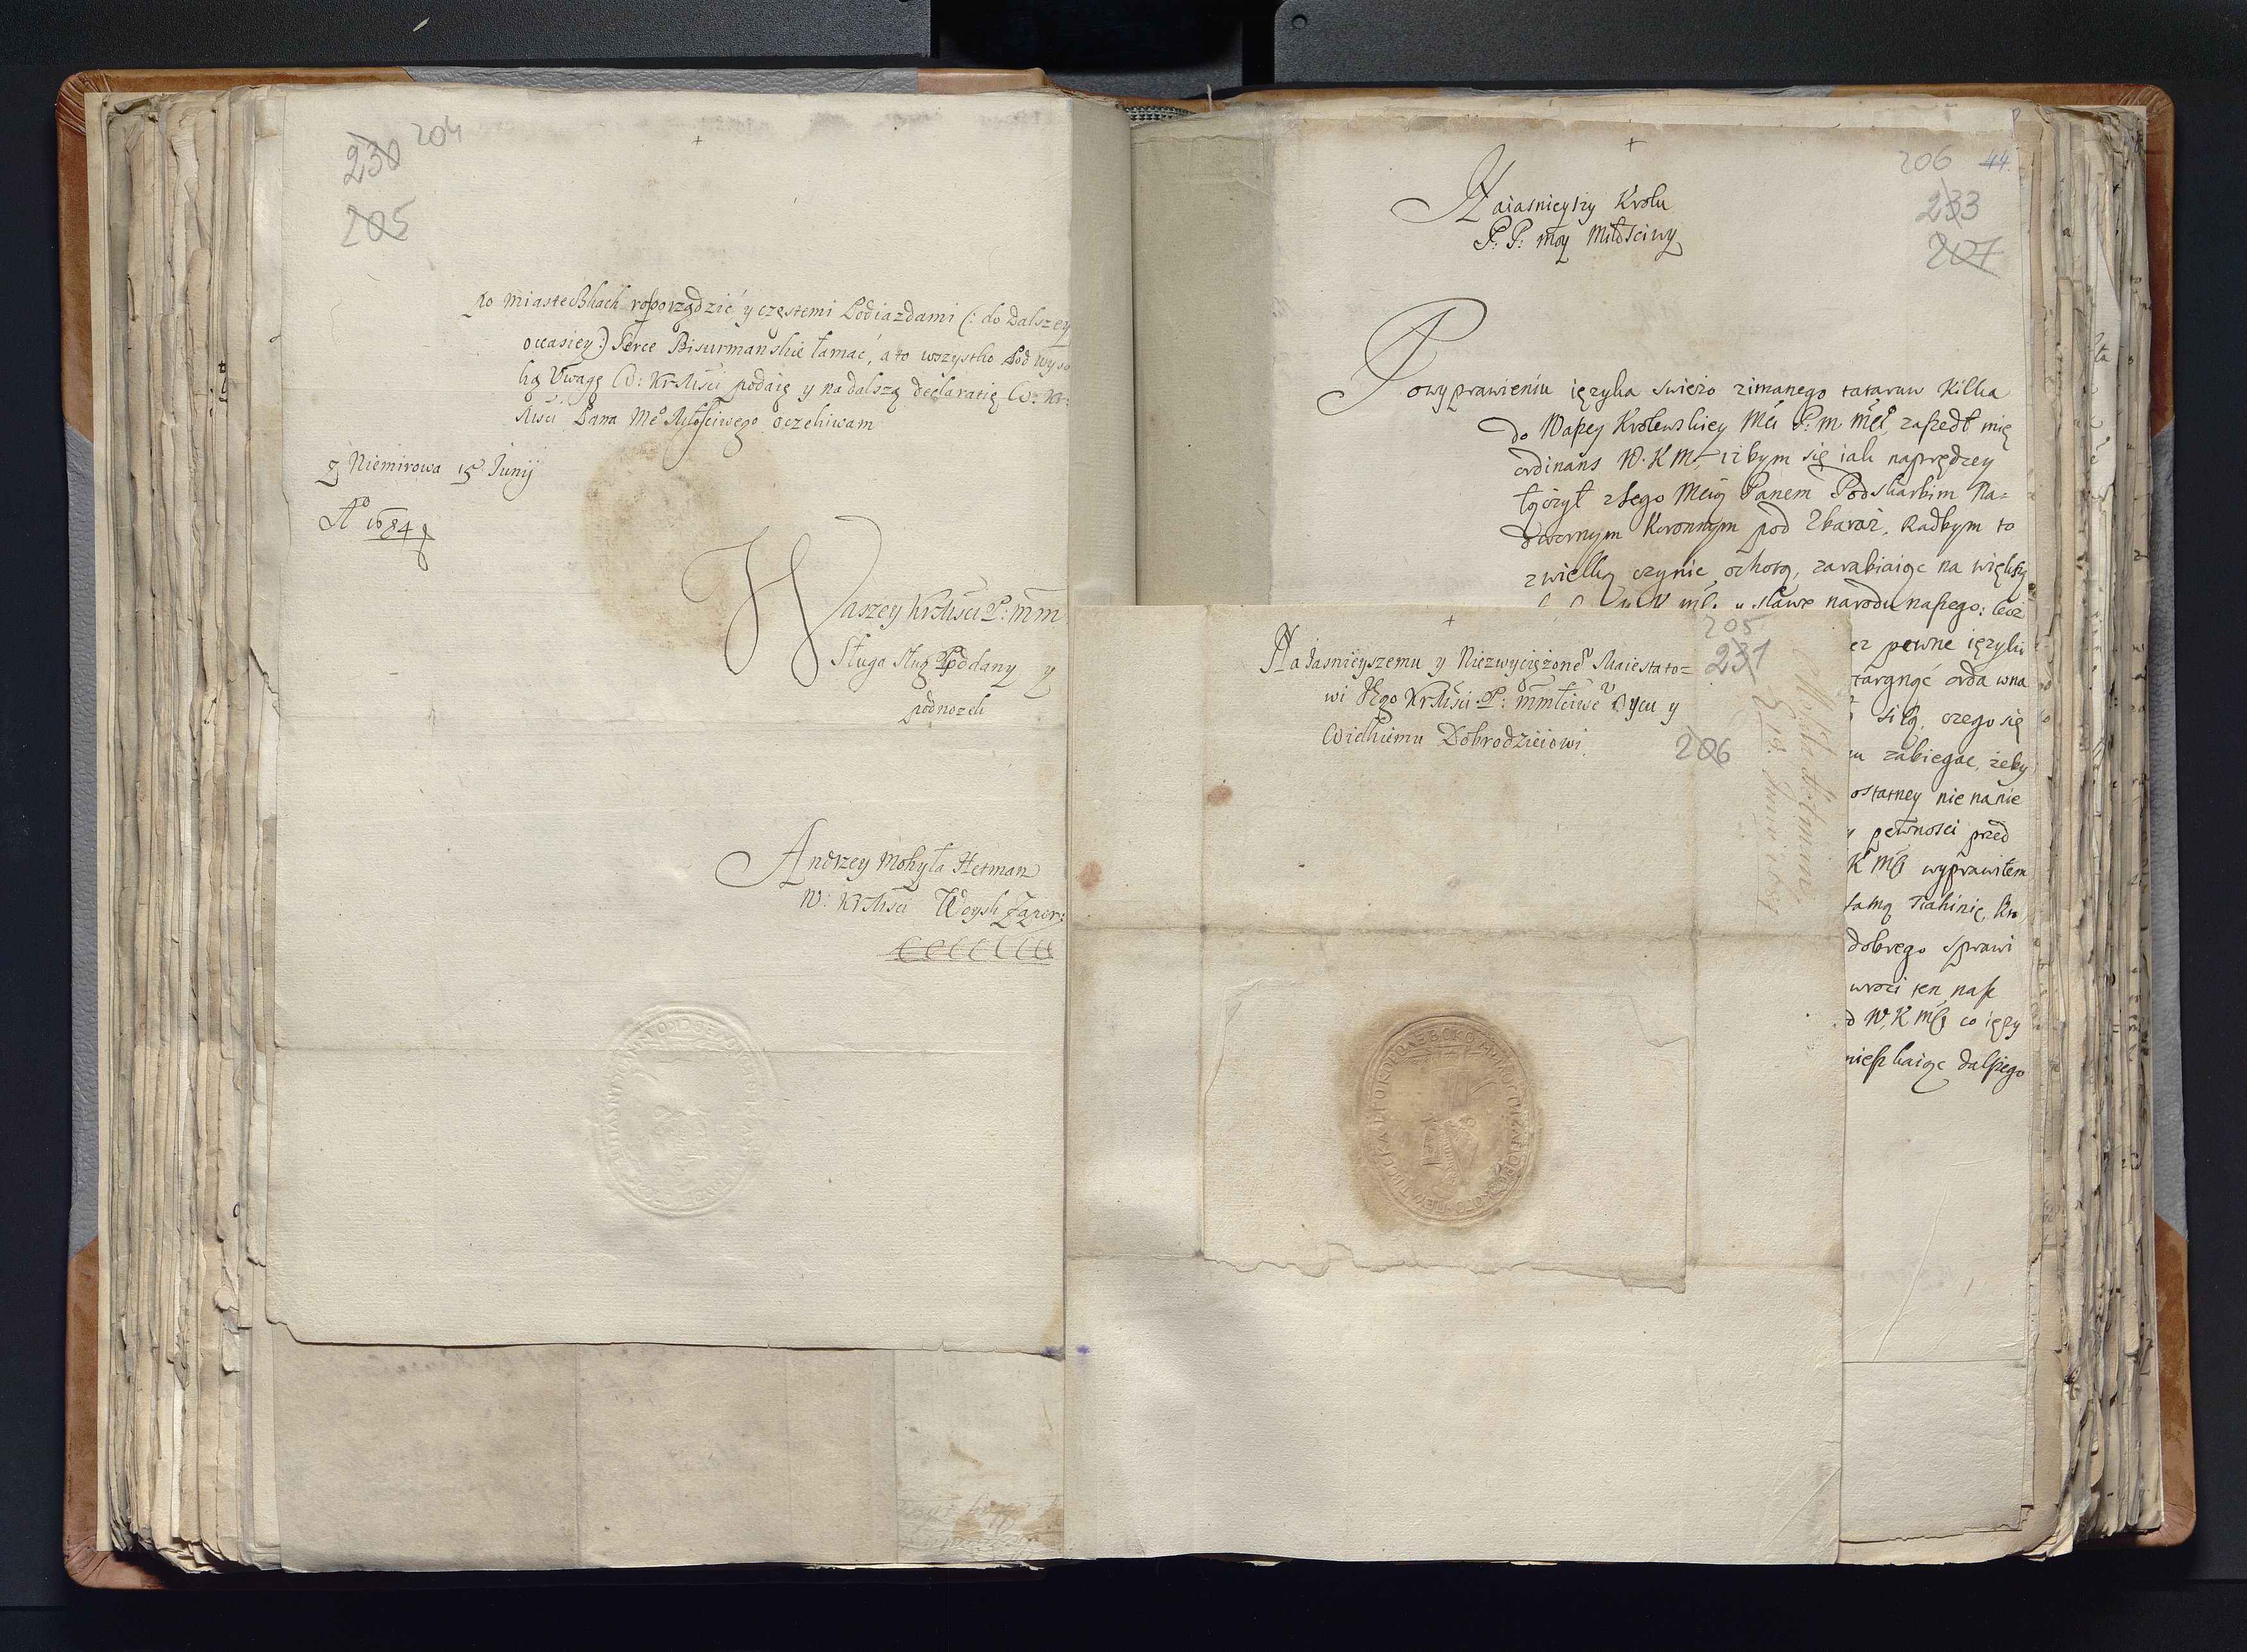 204
230
205
po miasteczkach rosporządzić y częstemi Podiazdami (: do dalszey
occasiey :) Serce Bisurmanskie łamać, a to wszystko pod wyso
ką Uwagę W: KrMsci podaię y na dalszą declaratię W: Kr:
Msci Pana Me° Miłościwego oczekiwam
Z Niemirowa 15 Junij
A° 1684
Waszey KrMsci P: mm
Sługa Poddany y
podnozek
Andrzey Mohyła Hetman
W: KrMsci Woysk Zapor:
206 44.
233
207
Naiasnieyszy Krolu
P: P: moy Miłosciwy
Po wyprawieniu ięzyka swiezo zimanego tatarow kilka
do Waszey Krolewskiey Mci P: m mci, zaszedł mię
ordinans W. K M, izbym się iak naprędzey
łączył z Jego Mcią Panem Podskarbim Na=
dwornym Koronnym pod Zbaraz. Radbym to
z wielką czynic ochotą, zarabiaiąc na większą
sławę narodu naszego: lecz
pewne ięzyki
targnąć orda wna
siłą, czego się
zabiegac, zeby
ostatney nie na nie
pewnosci przed
K Mci wyprawiłem
samą Tiahinię, Kn
dobrego sprawi
wroci ten nasz
W, K Mci co ięzy
mieszkaiąc dalszego
205
231
206
Naiasnieyszemu y Niezwyciężone° Maiestato=
wi Jego KrMsci P: mmłciwe° Oycu y
Wielkiemu Dobrodzieiowi
Mohiła Hetman
15 Junii 1684